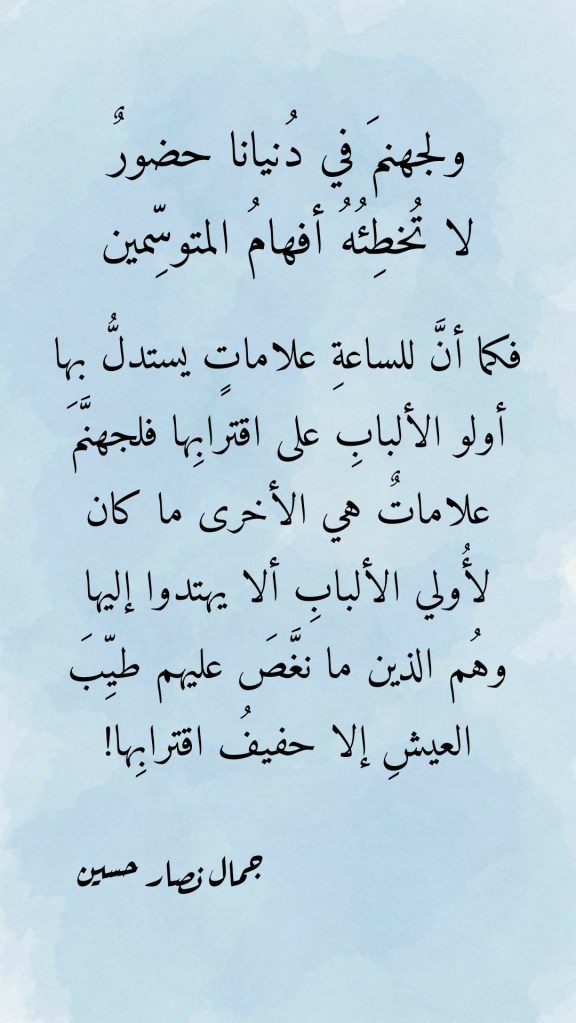 ولجهنمَ في دُنيانا حضورٌ
لا تُخطِئُهُ أفهامُ المتوسِّمين
فكما أنَّ للساعةِ علاماتٍ يستدلُّ بها
أولو الألبابِ على اقترابِها فلجهنَّمَ
علاماتٌ هي الأخرى ما كان
لأُولي الألبابِ ألا يهتدوا إليها
وهُم الذين ما نغَّصَ عليهم طيِّبَ
العيشِ إلا حفيفُ اقترابِها!
جمال نصار حسين